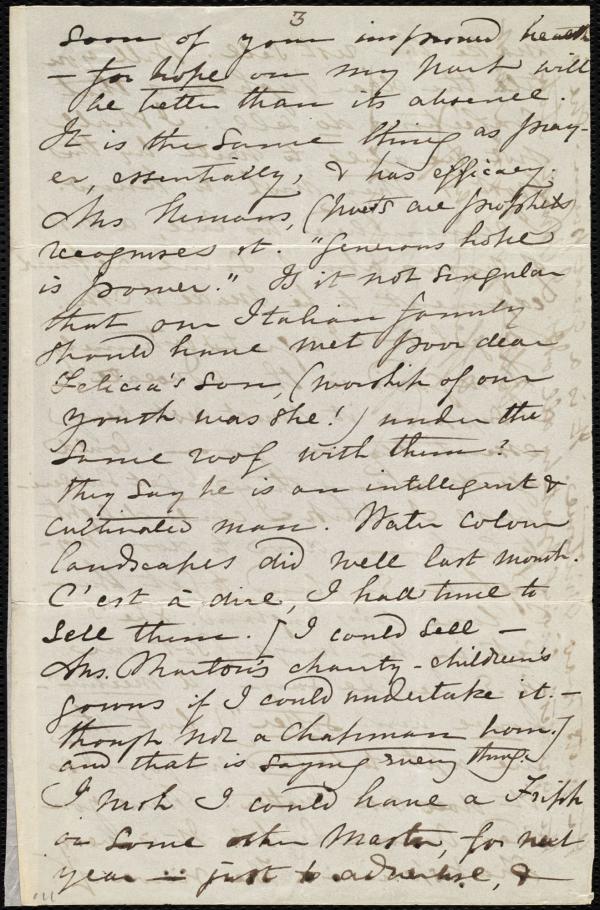 3
soon of your improved health
— for hope on my part will
be better than its absence.
It is the same thing as pray-
er, essentially, & has efficacy.
Mrs Hemans, (poets are prophets
recognises it. "Generous hope
is power." Is it not singular
that our Italian family
should have met poor dear
Felicia's son, (worship of our
youth was she!) under the
same roof with them? —
They say he is an intelligent &
cultivated man. Water colour
landscapes did well last month.
C'est à dire, I had time to
sell them. [I could sell —
Mrs. Marton's charity-children's
gowns if I could undertake it. —
though not a Chapman born.]
and that is saying every thing.
I wish I could have a Fripp
or some other Master, for next
year — just to advertise, &